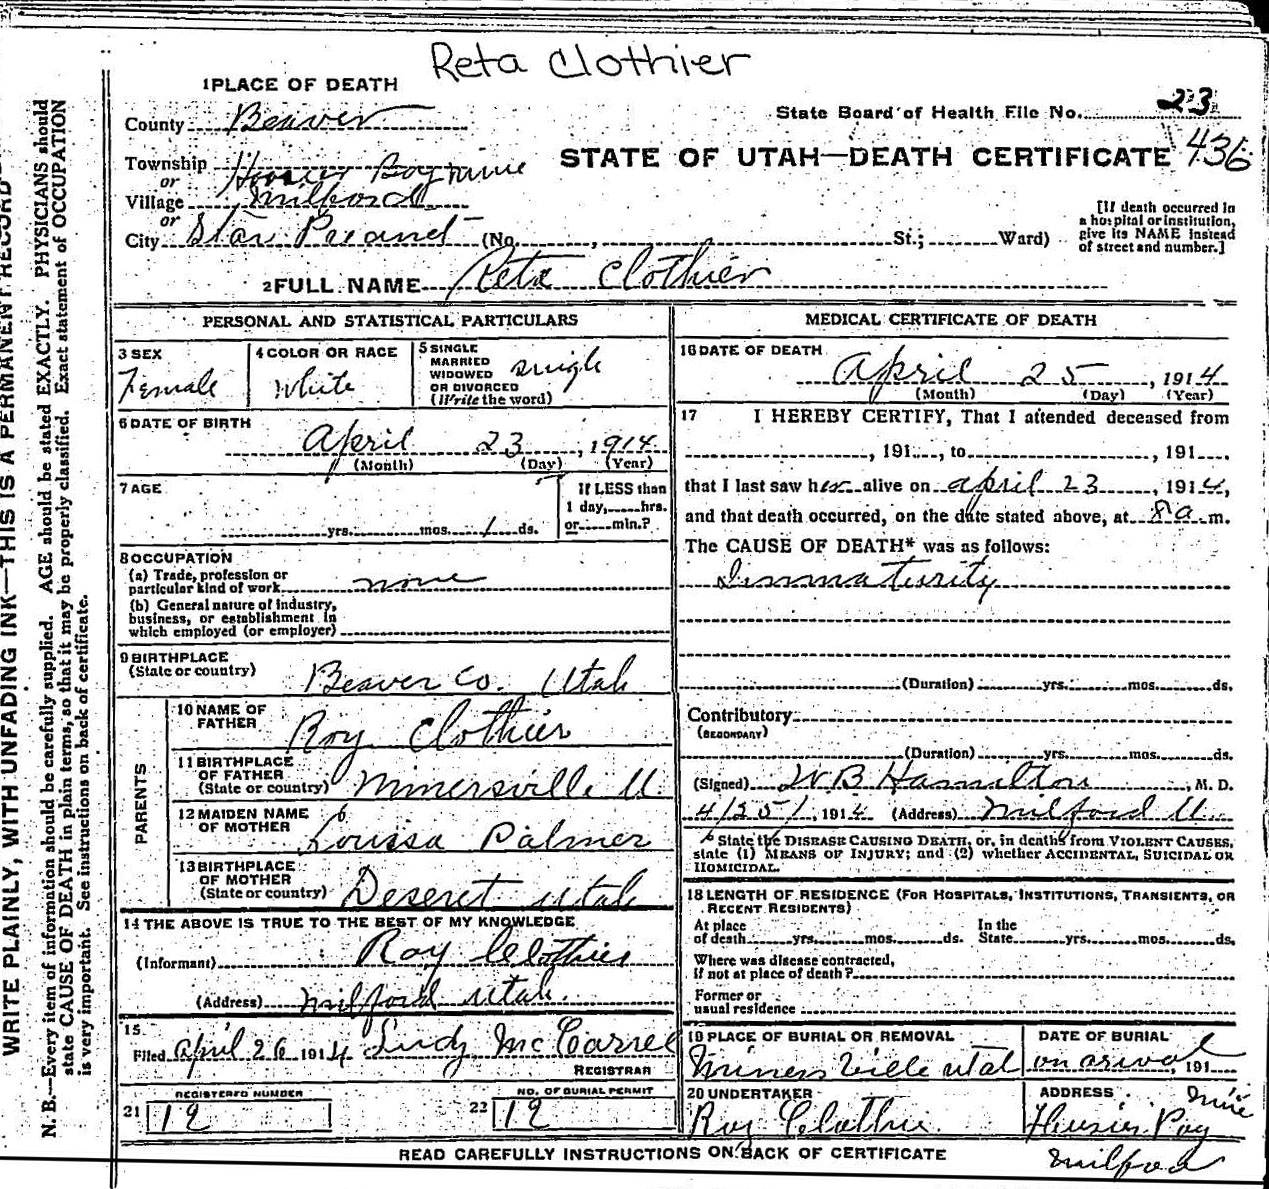 Reta Clothier
1 PLACE OF DEATH
State Board of Health File No. 23
County Beaver
STATE OF UTAH—DEATH CERTIFICATE 436
Township Hoosier Boy mine
or
Village Milford
or
City Star Precinct (No. , St.; Ward)
[If death occurred in
a hospital or institution,
give its NAME instead
of street and number.]
2 FULL NAME Reta Clothier
PERSONAL AND STATISTICAL PARTICULARS
3 SEX
Female
4 COLOR OR RACE
White
5 SINGLE
MARRIED
WIDOWED
OR DIVORCED
(Write the word)
single
6 DATE OF BIRTH
April 23, 1914
(Month) (Day) (Year)
7 AGE
yrs. mos. 1 ds.
If LESS than
1 day, hrs.
or min.?
8 OCCUPATION
(a) Trade, profession or
particular kind of work none
(b) General nature of industry,
business, or establishment in
which employed (or employer)
9 BIRTHPLACE
(State or country) Beaver Co. Utah
PARENTS
10 NAME OF
FATHER Roy Clothier
11 BIRTHPLACE
OF FATHER
(State or country) Minersville U.
12 MAIDEN NAME
OF MOTHER Louissa Palmer
13 BIRTHPLACE
OF MOTHER
(State or country) Deseret Utah
14 THE ABOVE IS TRUE TO THE BEST OF MY KNOWLEDGE
(Informant) Roy Clothier
(Address) Milford Utah.
15
Filed April 26 1914 McCarrel
REGISTRAR
REGISTERED NUMBER
21 12
NO. OF BURIAL PERMIT
22 12
MEDICAL CERTIFICATE OF DEATH
16 DATE OF DEATH
April 25, 1914
(Month) (Day) (Year)
17 I HEREBY CERTIFY, That I attended deceased from
, 191 , to , 191 .
that I last saw her alive on april 23, 1914,
and that death occurred, on the date stated above, at 8 a m.
The CAUSE OF DEATH* was as follows:
Immaturity
(Duration) yrs. mos. ds.
Contributory
(SECONDARY)
(Duration) yrs. mos. ds.
(Signed) W B Hamilton, M. D.
4/25/, 1914 (Address) Milford U.
* State the DISEASE CAUSING DEATH, or, in deaths from VIOLENT CAUSES,
state (1) MEANS OF INJURY; and (2) whether ACCIDENTAL, SUICIDAL OR
HOMICIDAL.
18 LENGTH OF RESIDENCE (FOR HOSPITALS, INSTITUTIONS, TRANSIENTS, OR
RECENT RESIDENTS)
At place
of death yrs. mos. ds.
In the
State yrs. mos. ds.
Where was disease contracted,
if not at place of death?
Former or
usual residence
19 PLACE OF BURIAL OR REMOVAL
Minersville Utah
DATE OF BURIAL
on arival, 191
20 UNDERTAKER
Roy Clothier
ADDRESS
mine
Boy
Milford
READ CAREFULLY INSTRUCTIONS ON BACK OF CERTIFICATE
WRITE PLAINLY, WITH UNFADING INK—THIS IS A PERMANENT RECORD
N. B.—Every item of information should be carefully supplied. AGE should be stated EXACTLY. PHYSICIANS should
state CAUSE OF DEATH in plain terms, so that it may be properly classified. Exact statement of OCCUPATION
is very important. See instructions on back of certificate.